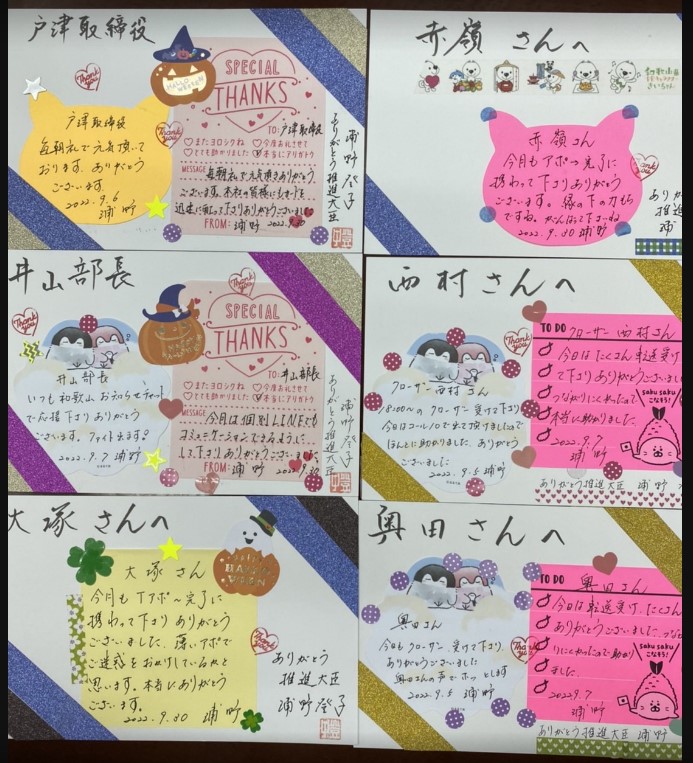 戸津取締役
Thank you
HALLOWEEN
戸津取締役
毎朝礼で元気頂いて
おります。ありがとう
ございます。
2022.9.6
浦野
SPECIAL
THANKS
TO:戸津取締役
またヨロシクね
今度お礼させて
とても助かりました
本当にアリガトウ
MESSAGE
毎朝礼で元気頂きありがとう
ございます。本社の皆様に
下さりありがとうございました
FROM:浦野 2022.9.30
ありがとう推進大臣
浦野
赤嶺さんへ
赤嶺さん
今月もアポ〜完了に
携わって下さりありがとう
ございます。縁の下の力もち
ですね。がんばって下さいね
2022.9.30 浦野
Thank you
ありが
推進
浦
井山部長
Thank you
井山部長
いつも和歌山お知らせチャット
で応援下さりありがとう
ございます。ファイト出ます!
2022.9.7 浦野
Thank you
SPECIAL
THANKS
TO:井山部長
またヨロシクね
今度お礼させて
とても助かりました
本当にアリガトウ
MESSAGE
今月は個別LINEでも
コミュニケーションできるように
して下さりありがとうございました
FROM:浦野
ありがとう推進大臣
浦野
西村さんへ
Thank you
クローザー西村さん
クローザー受けて下さり
今日コールノロで出て頂けましたので
ほんとに助かりました。ありがとう
ございました
2022.9.5 浦野
TO DO
クローザー西村さん
今日はたくさん転送受け
て下さりありがとうございまし
つながりにくかったので
本当に助かりました
2022.9.7
浦野
saku saku
こなそう!
ありがとう推進大臣 浦野
大塚さんへ
大塚さん
今月もTアポ〜完了に
携わって下さりありがとう
ございました。薄いアポで
ご迷惑をおかけしているかと
思います。本当にありがとう
ございます。
2022.9.30 浦野
Thank you
ありがとう
推進大臣
浦野
奥田さんへ
奥田さん
今日もクローザー受けて下さり
ありがとうございました
奥田さんの声でホッとします
2022.9.5 浦野
Thank you
TO DO
奥田さん
今日は転送受け、たくさん
ありがとうございました。つなが
りにくかったので助かり
ました
2022.9.7
浦野
saku saku
こなそう!
ありがとう推進大臣 浦野